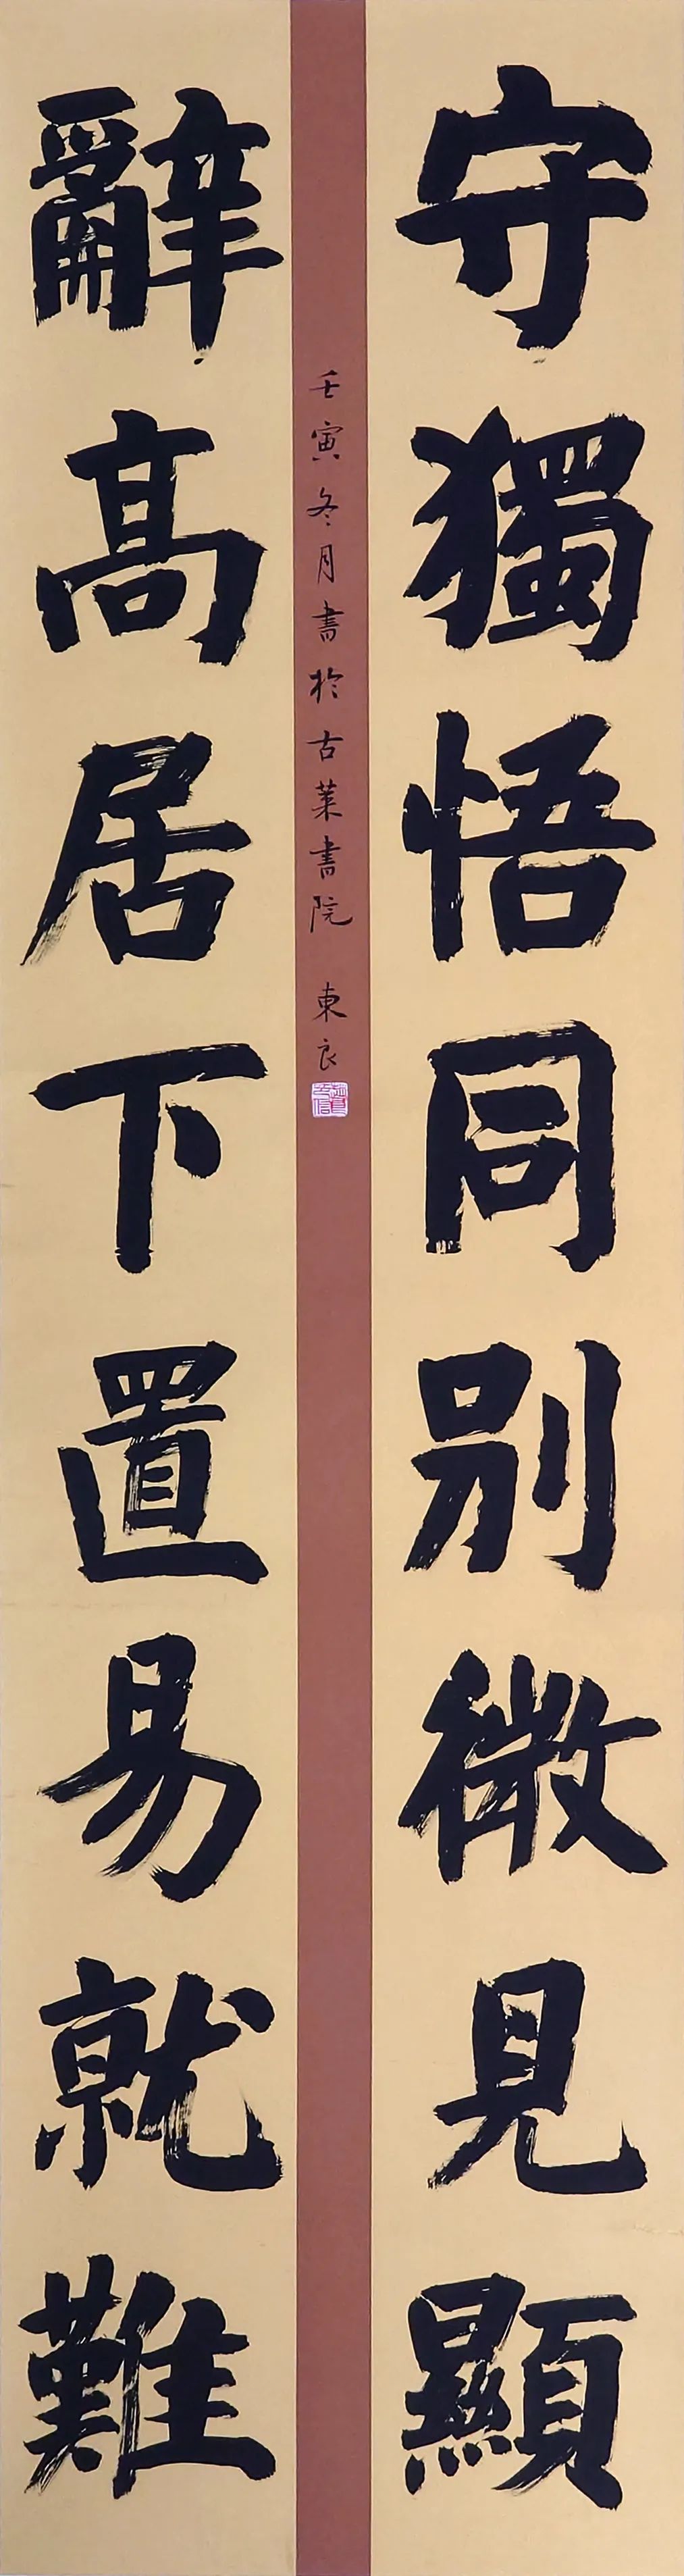 守獨悟同別微見顯
辭高居下置易就難
壬寅冬月書於古萊書院 東良